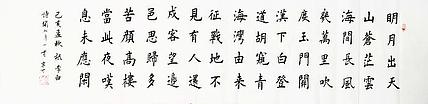 明月出天
山蒼茫雲
海間長風
幾萬里吹
度玉門關
漢下白登
道胡窺青
海灣由來
征戰地不
見有人還
戍客望邊
邑思歸多
苦顏高樓
當此夜嘆
息未應閒
己亥孟秋 李白
詩關山月一首